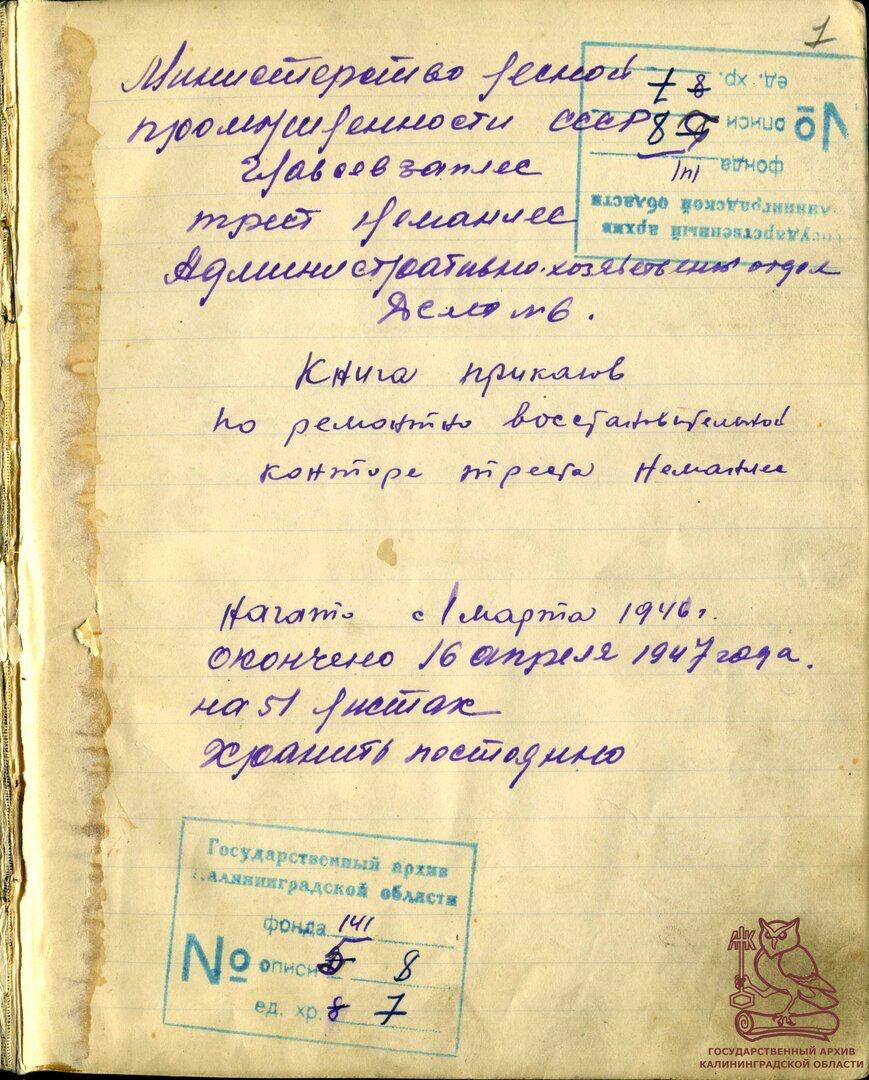 1
Министерство лесной
промышленности СССР
Главсевзаплес
трест Неманлес
Административно-хозяйствены отдел
Дело №6.
Книга приказов
по ремонтно восстановительной
конторе треста Неманлес
Начато с 1 марта 1946 г.
Окончено 16 апреля 1947 года.
на 51 листах
Хранить постоянно
Государственный архив
Калининградской области
фонда 141
№ описи 8
ед. хр. 8 7
Государственный архив
Калининградской области
фонда 141
№ описи 8
ед. хр. 8 7
АК
ГОСУДАРСТВЕННЫЙ АРХИВ
КАЛИНИНГРАДСКОЙ ОБЛАСТИ